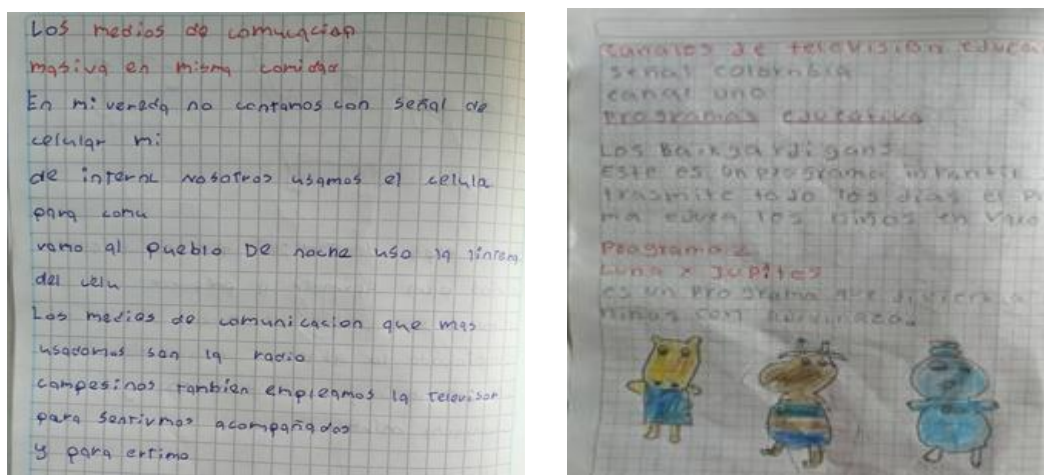 Los medios de comucacion
masiva en misma comidad
En mi vereda no contamos con señal de
celular mi
de interne nosotros usamos el celula
para comu
vamo al pueblo De noche uso la lintern
del celu
Los medios de comunicacion que mas
usadamos son la radio
campesinos tanbien empleamos la televisor
para sentirmos acompañados
y para
canales de television educa
señal colombia
canal uno
Programas educativa
Los Backyardigans
Este es un programa infantil
trasmite todo los dias el p
ma educa los niños en
Programa 2
Luna x Jupites
es un programa que
niños con